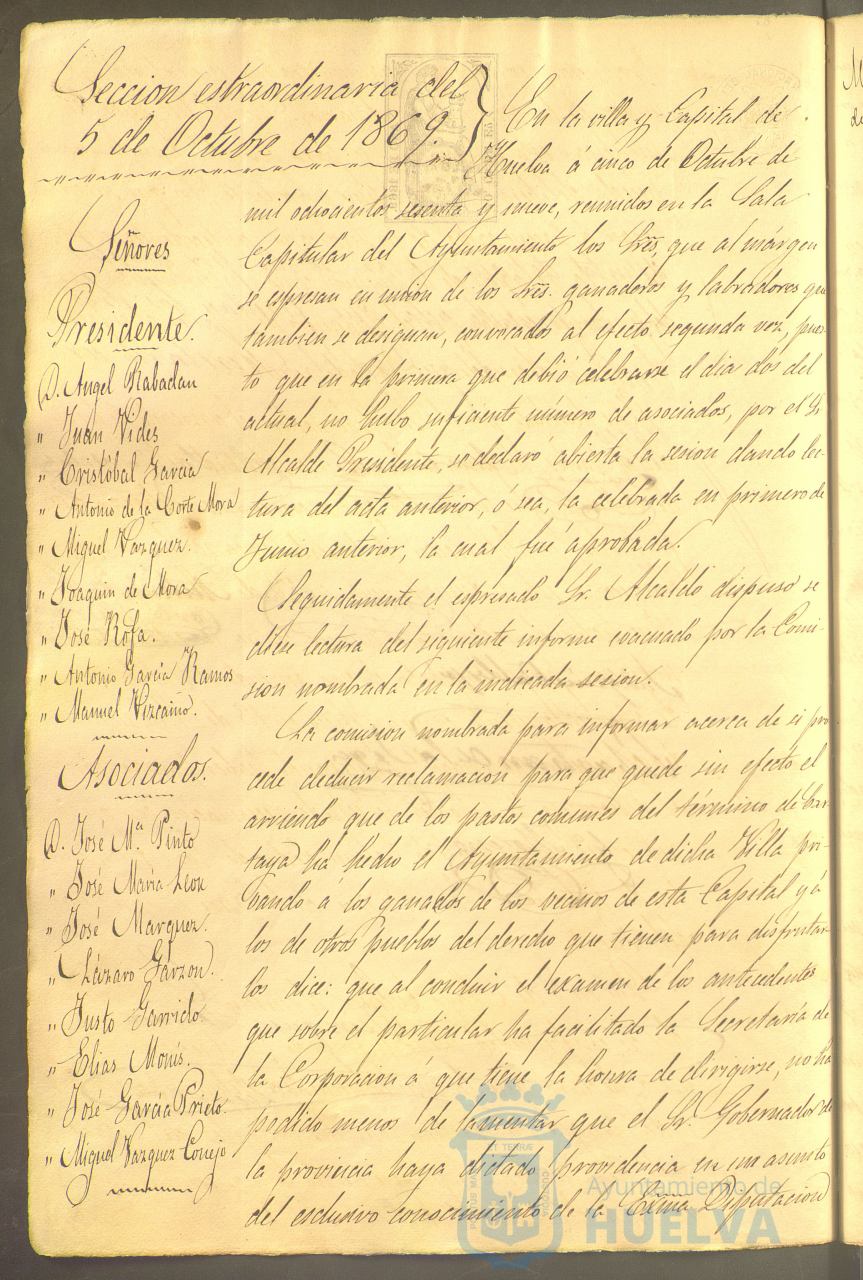 Seccion estraordinaria del
5 de Octubre de 1869.
Señores
Presidente.
D. Angel Rabadan
" Juan Vides
" Cristóbal García
" Antonio de la Corte Mora
" Miguel Vazquez.
" Joaquin de Mora
" José Rofa.
" Antonio García Ramos
" Manuel Vizcaino.
Asociados.
D. José Mª Pinto
" José María Leon
" José Marquez.
" Lázaro Garzon.
" Justo Garrido.
" Elias Monís.
" José García Prieto.
" Miguel Vazquez Conejo
En la villa y Capital de
Huelva á cinco de Octubre de
mil ochocientos sesenta y nueve, reunidos en la Sala
Capitular del Ayuntamiento los Sres, que al márgen
se espresan en union de los Sres. ganaderos y labradores que
tambien se designan, convocados al efecto segunda vez, pues
to que en la primera que debió celebrarse el dia dos del
actual, no hubo suficiente número de asociados, por el Sr
Alcalde Presidente, se declaró abierta la sesion dando lec-
tura del acta anterior, ó sea, la celebrada en primero de
Junio anterior, la cual fué aprobada.
Seguidamente el espresado Sr. Alcalde dispuso se
diese lectura del siguiente informe evacuado por la Comi-
sion nombrada en la indicada sesion.
La comision nombrada para informar acerca de si pro
cede deducir reclamacion para que quede sin efecto el
arriendo que de los pastos comunes del término de Car
taya ha hecho el Ayuntamiento de dicha Villa pri-
bando á los ganados de los vecinos de esta Capital y á
los de otros pueblos del derecho que tienen para disfrutar
los dice: que al concluir el examen de los antecedentes
que sobre el particular ha facilitado la Secretaría de
la Corporacion á que tiene la honra de dirigirse, no ha
podido menos de lamentar que el Sr. Gobernador de
la provincia haya dictado providencia en un asunto
del esclusivo conocimiento de la Exma Diputacion
Ayuntamiento de
HUELVA